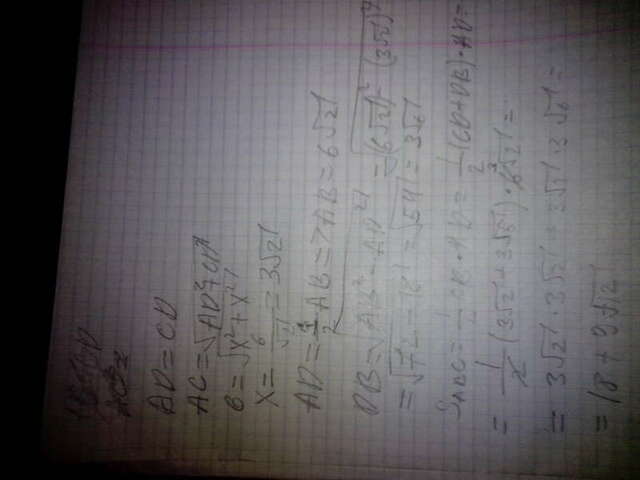 AD = CD
AC = √AD²+CD²
6 = √x²+x²
x = 6/√2 = 3√2
AD = 1/2 AB => AB = 6√2
DB = √AB² - AD² = √(6√2)² - (3√2)²
= √72-18 = √54 = 3√6
S ABC = 1/2 CB · AD = 1/2 (CD+DB) · AD =
= 1/2 (3√2+3√6) · 3√2 =
= 3√2 · 3√2 + 3√2 · 3√6 =
= 18 + 9√12